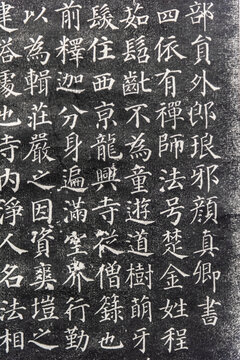 部貟外郎琅邪顔真卿書
四依有禪師法号楚金姓程
茹髫齓不為童遊道樹萌牙
髮住西京龍興寺從僧籙也
前釋迦分身遍滿空界行勤
以為輯莊嚴之因資爽塏之
建塔處也寺内淨人名法相